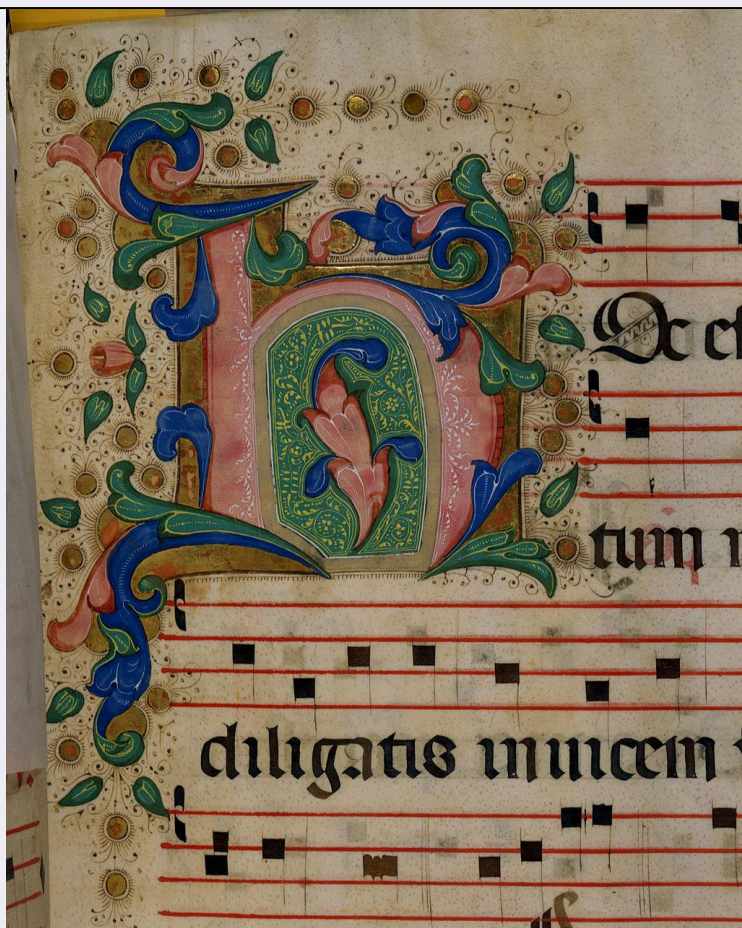 H Oc es
tum
diligatis inuicem